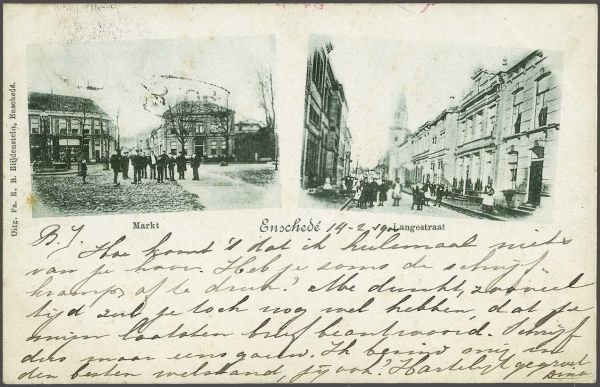 Uitg. Fa. E. B. Blijdenstein, Enschedé.
Markt
Enschedé
Langestraat
14-2 190
B. J.
Hoe komt 't dat ik heelemaal niets
van je hoor. Heb je soms de schrijf
kramp, of te druk? Me dunkt, zooveel
tijd zul je toch nog wel hebben, dat je
mijn laatsten brief beantwoord. Schrijf
dus maar eens gauw. Ik bevind mij in
den besten welstand, jij ook? Hartelijk gegroet